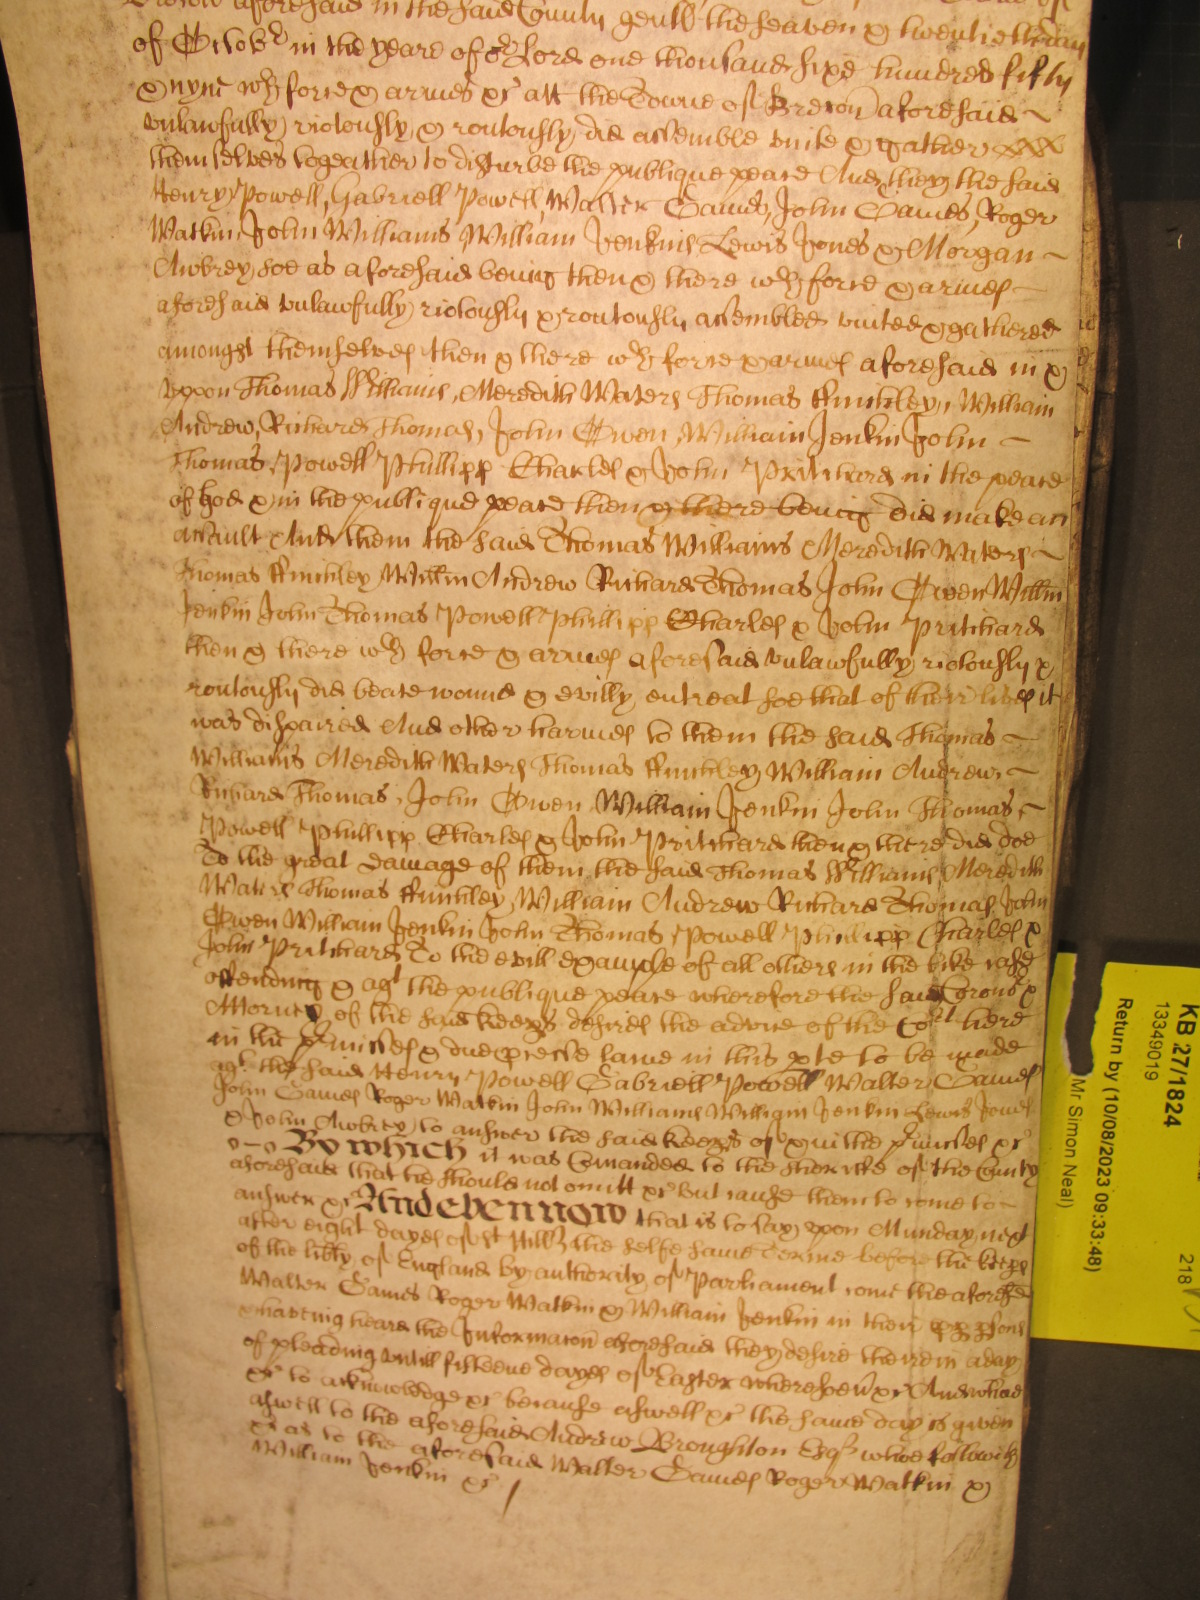 aforesaid in the said County gentl the seaven & twentieth day
of Octobr in the yeare of or Lord one thousand sixe hundred fifty
& nyne wth force & armes &c att the Towne of Brecon aforesaid
unlawfully riotously & routously did assemble unite & gather
themselves togeather to disturbe the publique peace And they the said
Henry Powell, Gabriell Powell, Walter Games, John Games, Roger
Watkin John Williams William Jenkins Lewis Jones & Morgan
Awbrey soe as aforesaid being then & there wth force & armes
aforesaid unlawfully riotously & routously assembled united & gathered
amongst themselves then & there wth force & armes aforesaid in &
upon Thomas Williams, Meredith Waters Thomas ffinchley, William
Andrew, Richard Thomas, John Owen William Jenkin John
Thomas, Powell Phillipp Charles & John Pritchard in the peace
of God & in the publique peace then & there being did make an
assault And them the said Thomas Williams Meredith Waters
Thomas ffinchley Willm Andrew Richard Thomas John Owen Willm
Jenkin John Thomas Powell Phillipp Charles & John Pritchard
then & there wth force & armes aforesaid unlawfully riotously &
routously did beate wound & evilly entreat soe that of their lives it
was dispaired And other harmes to them the said Thomas
Williams Meredith Waters Thomas ffinchley William Andrew
Richard Thomas, John Owen William Jenkin John Thomas
Powell Phillipp Charles & John Pritchard then & there did doe
To the great damage of them the said Thomas Williams Meredith
Waters Thomas ffinchley William Andrew Richard Thomas John
Owen William Jenkin John Thomas Powell Phillipp Charles &
John Pritchard To the evill example of all others in the like case
offending & agt the publique peace wherefore the said Coronr &
Attorney of the said keeps desires the advice of the Cort here
in the pmisses & due pcesse lawe in this pte to be made
agt the said Henry Powell Gabriell Powell Walter Games
John Games Roger Watkin John Williams William Jenkin Lewis Jones
& John Awbrey to answer the said keeps of & in the pmisses &c
By which it was Comanded to the Sheriffe of the County
aforesaid that he should not omitt &c but cause them to come to
answer &c And even now that is to say upon Munday next
after eight dayes of St Hill the selfe same Terme before the keeps
of the libty of England by authority of Parliament come the aforesd
Walter Games Roger Watkin & William Jenkin in their pp psons
& haveing heard the Informacon aforesaid they desire therein a day
of pleading untill fifteene dayes of Easter
&c to acknowledge &c because aswell &c the same day is given
aswell to the aforesaid Andrew Broughton Esqr whoe followeth
&c as to the aforesaid Walter Games Roger Watkin &
William Jenkin &c
KB 27/1824
13349019
218
Return by (10/08/2023 09:33:48)
Mr Simon Neal)